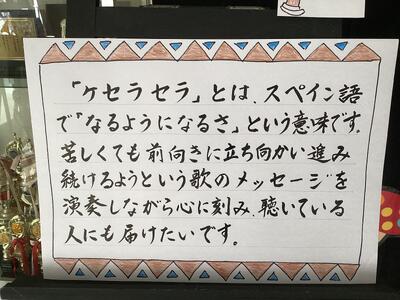 「ケセラセラ」とは、スペイン語
で「なるようになるさ」という意味です。
苦しくても前向きに立ち向かい進み
続けるようという歌のメッセージを
演奏しながら心に刻み、聴いている
人にも届けたいです。